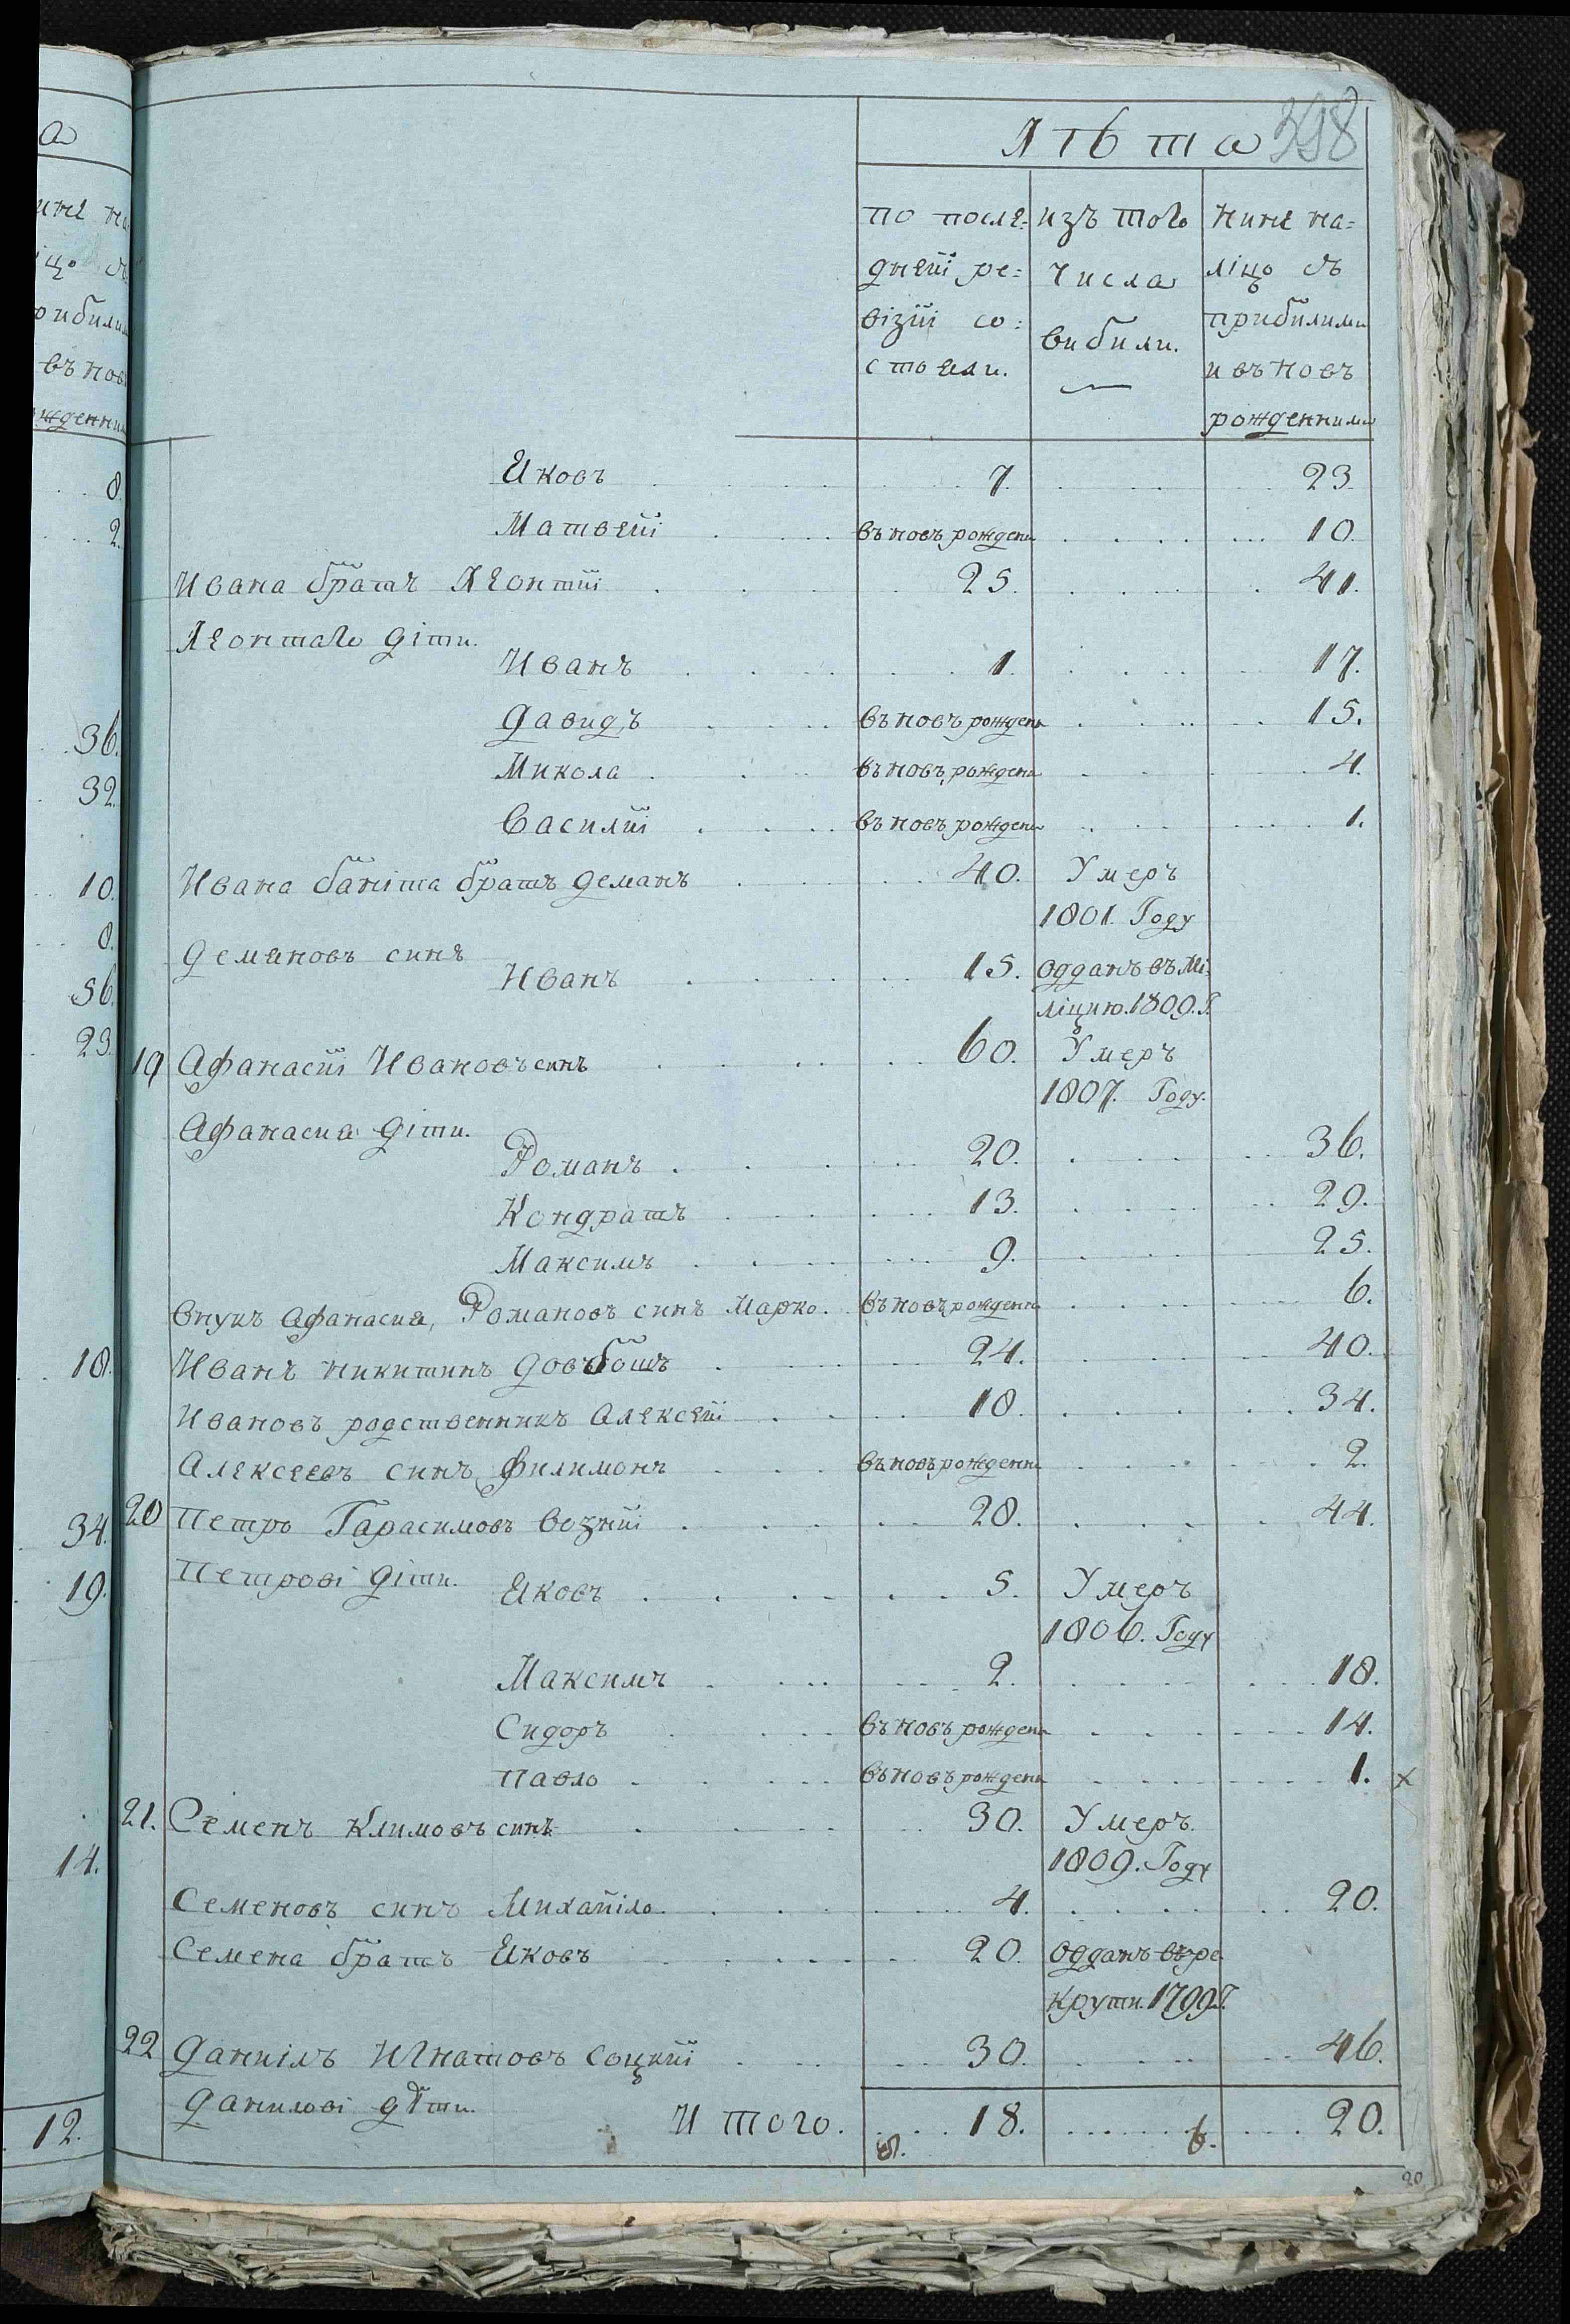 Лѣта 398
по после=
дней ре=
візіи со=
стояли.
изъ того
числа
вибили.
нине на=
ліцо съ
прибилими
и въновь
рожденними
Яковъ 7. 23
Матвей въновъ рожденъ 10
Ивана братъ Леонтій 25. 41.
Леонтаго діти.
Иванъ 1. 17.
Давидъ въновъ рожденъ 15.
Микола въновъ рожденъ 4.
Василій въновъ рожденъ 1.
Ивана баніта братъ Демянъ 40. Умеръ
1801. Году
Демяновъ синъ
Иванъ 15. Одданъ въ Мі=
ліцию. 1809. Г.
19 Афанасій Ивановъ синъ 60. Умеръ
1807. Году.
Афанасия діти.
Романъ 20. 36.
Кондратъ 13. 29.
Максимъ 9. 25.
Внукъ Афанасия, Романовъ синъ Марко. въновъ рожденъ 6.
Иванъ Никитинъ Довбошъ 24. 40.
Ивановъ родственникъ Алексей 18. 34.
Алексеевъ синъ Филимонъ въновъ рожденъ 2.
20 Петръ Гарасимовъ Возній 28. 44.
Петрові діти. Яковъ 5. Умеръ
1806. Году
Максимъ 2. 18.
Сидоръ въновъ рожденъ 14.
Павло въновъ рожденъ 1. x
21. Семенъ Климовъ синъ 30. Умеръ.
1809. Году
Семеновъ синъ Михайло 4. 20.
Семена братъ Яковъ 20. Одданъ въ ре
крути. 1799. Г.
22 Даниілъ Игнатовъ Соцкій 30. 46.
Данилові діти.
И того. 18. 6. 20.
20
а
ине на
іцо съ
рибилим
въновъ
ожденним
8.
2.
36.
32.
10.
8.
56.
23.
18.
34.
19.
14.
12.